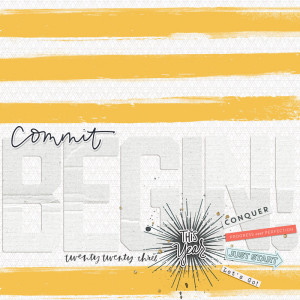 Commit
BEGIN!
CONQUER
This
Year
PROGRESS over PERFECTION
JUST START
twenty twenty three
Let's Go!